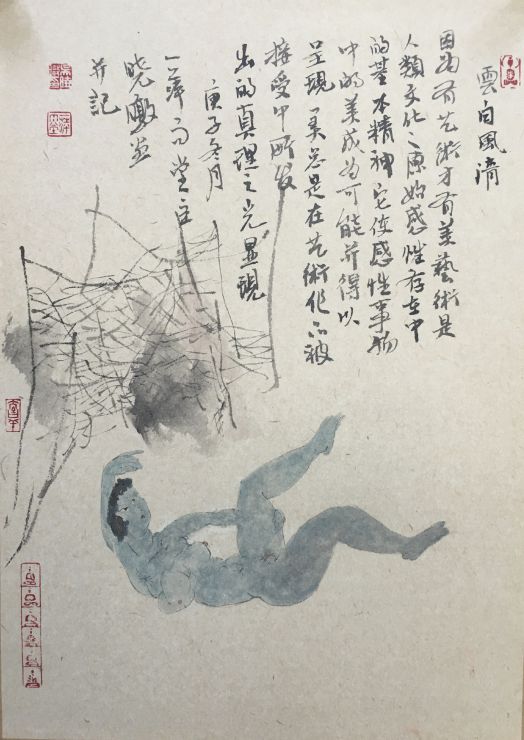 雲白風清
因为有艺術才有美藝術是
人類文化之原始感性存在中
的基本精神它使感性事物
中的美成为可能并得以
呈現 美总是在艺術作品被
接受中所发
出的真理之光显現
庚子冬月
一萍高堂主
晓
并記